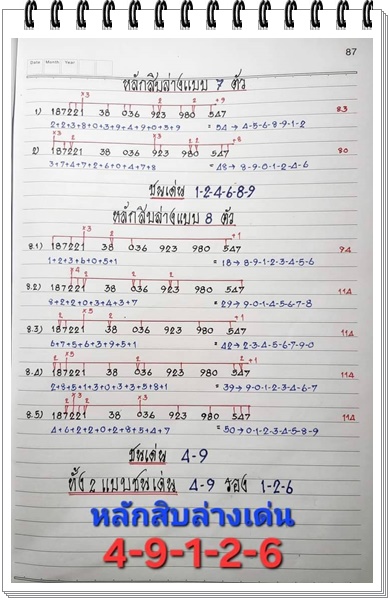 87
Date Month Year
หลักสิบล่างแบบ 7 ตัว
×3 2 2 +9
1) 187221 38 036 923 980 547 83
2+2+3+8+0+3+9+4+9+0+5+9 = 54 → 4-5-6-8-9-1-2
×3 2 2 +8
2) 187221 38 036 923 980 547 80
3+7+4+7+2+6+0+4+7+8 = 48 → 8-9-0-1-2-4-6
ชนเด่น 1-2-4-6-8-9
หลักสิบล่างแบบ 8 ตัว
×3 2 +1
8.1) 187221 38 036 923 980 547 94
1+2+3+6+0+5+1 = 18 → 8-9-1-2-3-4-5-6
×4 2 2
8.2) 187221 38 036 923 980 547 114
8+2+2+0+3+4+3+7 = 29 → 9-0-1-4-5-6-7-8
2 ×5 +1
8.3) 187221 38 036 923 980 547 114
6+7+5+6+3+9+5+1 = 42 → 2-3-4-5-6-7-9-0
×5 2 +1
8.4) 187221 38 036 923 980 547 114
2+8+5+1+3+0+3+3+5+8+1 = 39 → 9-0-1-2-3-4-6-7
2 ×3 2 ×3
8.5) 187221 38 036 923 980 547 114
4+6+2+2+0+2+8+5+4+7 = 50 → 0-1-2-3-4-5-8-9
ชนเด่น 4-9
ทั้ง 2 แบบชนเด่น 4-9 รอง 1-2-6
หลักสิบล่างเด่น
4-9-1-2-6